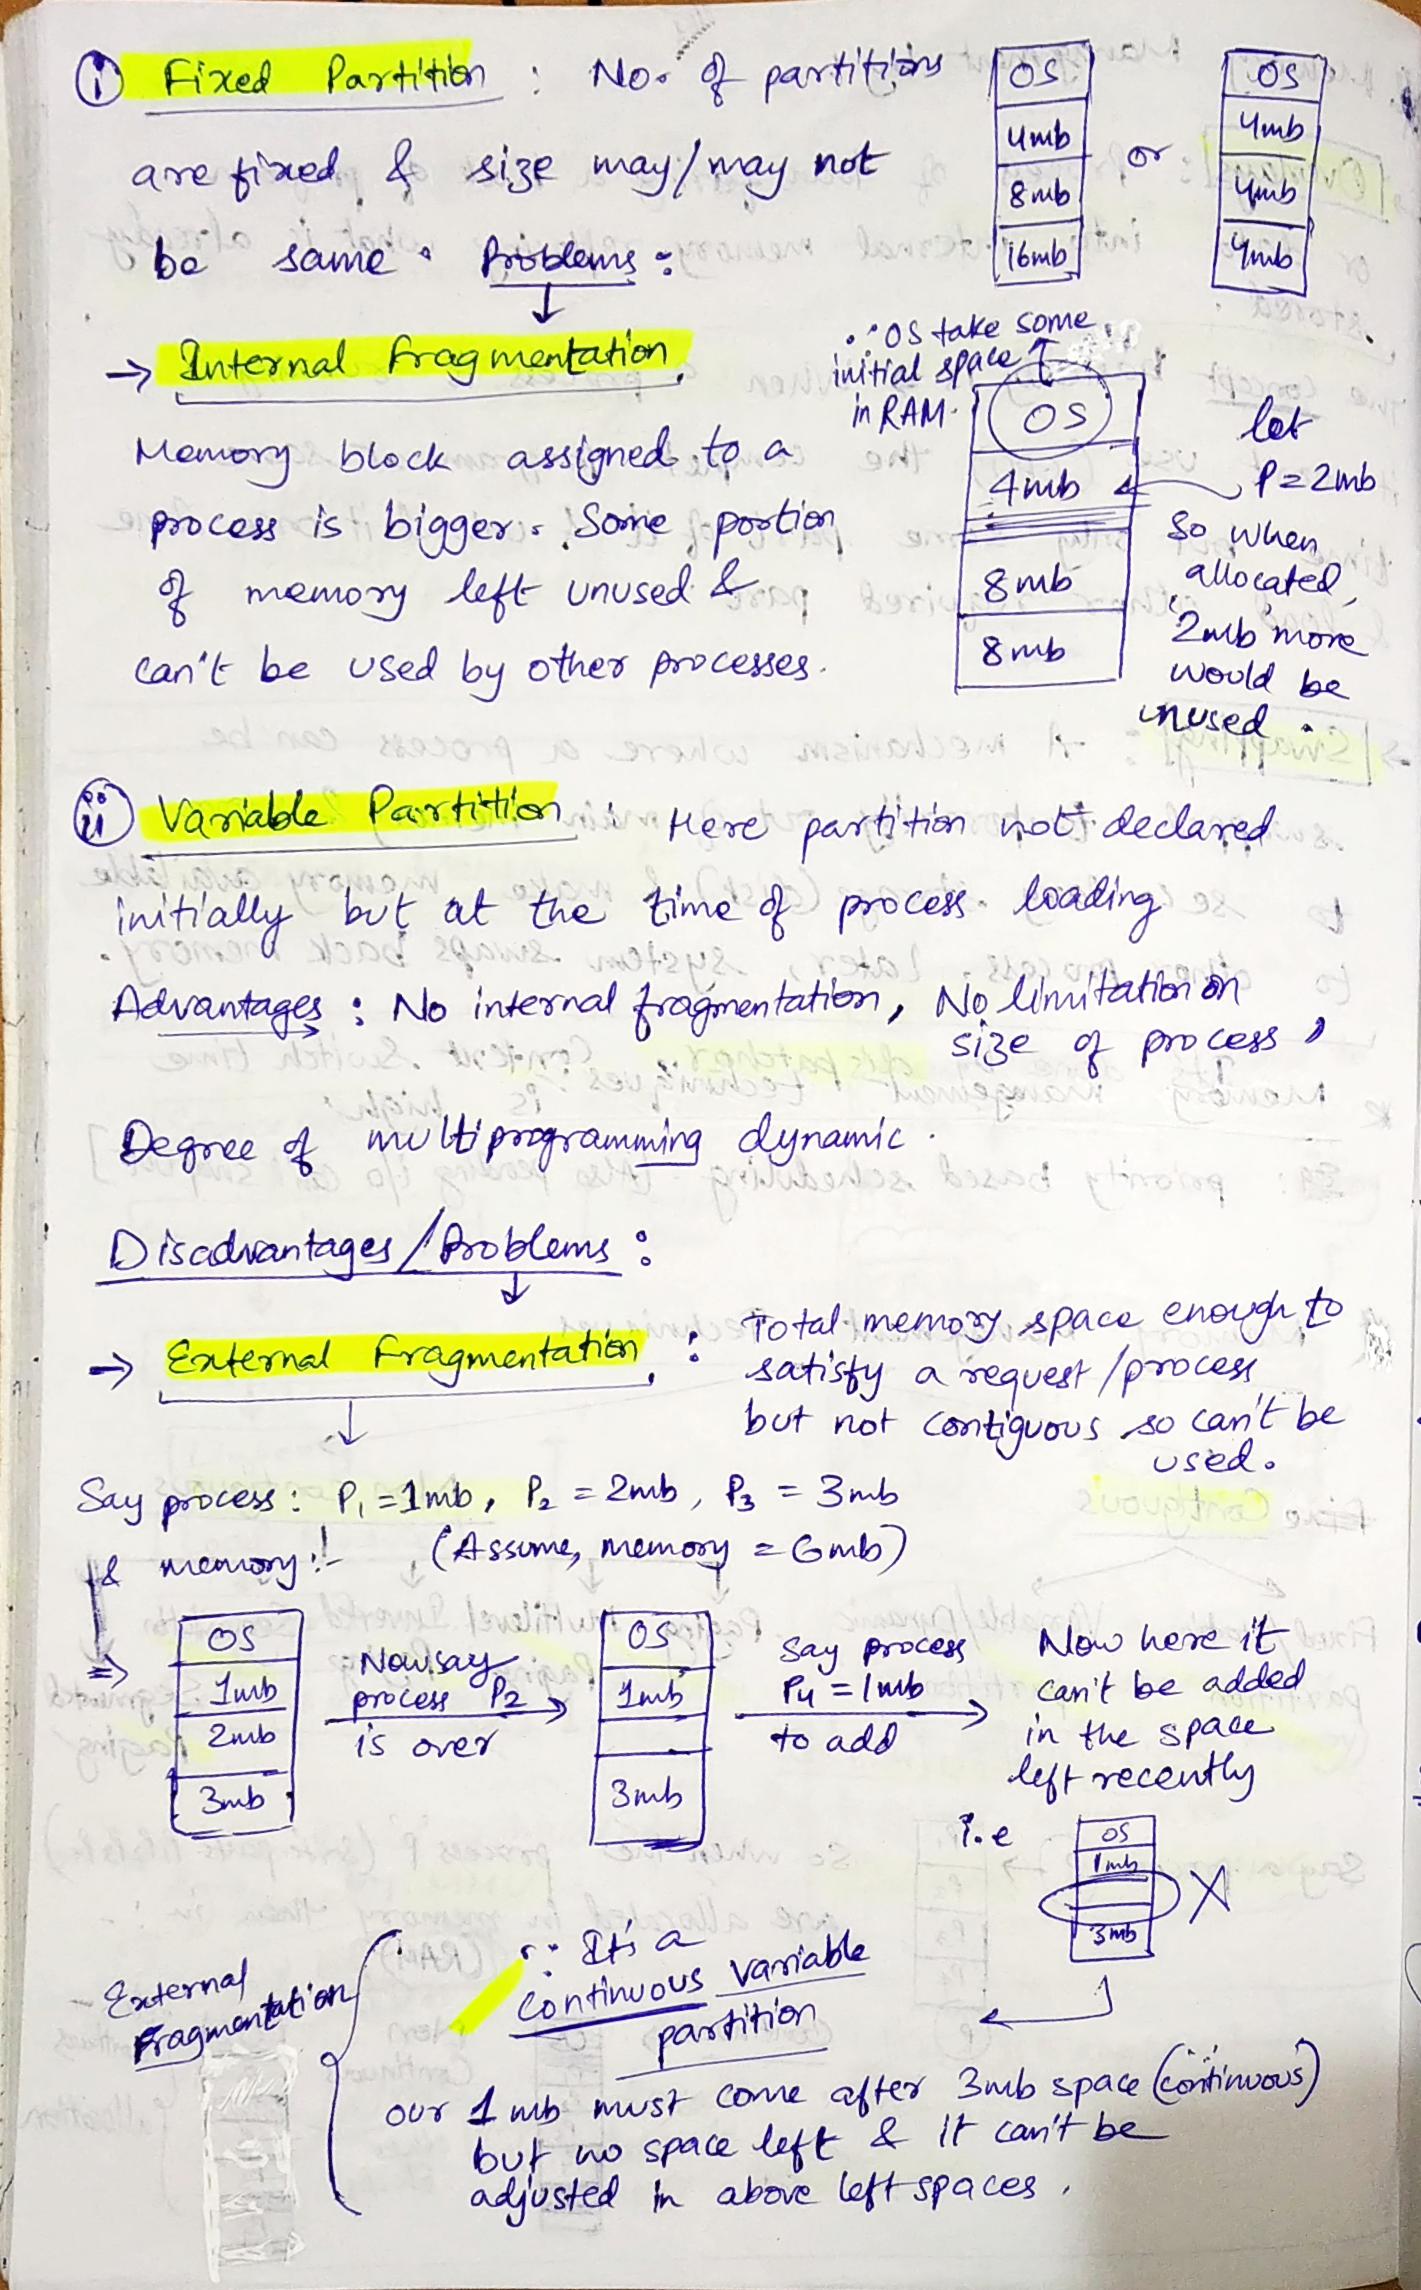 (i) Fixed Partition : No. of partitions
are fixed & size may/may not
be same. Problems :
OS
4mb
8mb
16mb
or
OS
4mb
4mb
4mb
→ Internal Fragmentation
Memory block assigned to a
process is bigger. Some portion
of memory left unused &
can't be used by other processes.
∴ OS take some
initial space
in RAM.
OS
4mb
8mb
8mb
let
P=2mb
So when
allocated,
2mb more
would be
unused.
(ii) Variable Partition : Here partition not declared
initially but at the time of process loading
Advantages : No internal fragmentation, No limitation on
size of process,
Degree of multiprogramming dynamic.
Disadvantages/Problems :
→ External Fragmentation : Total memory space enough to
satisfy a request/process
but not contiguous so can't be
used.
Say process : P₁ = 1mb, P₂ = 2mb, P₃ = 3mb
& memory :- (Assume, memory = 6mb)
⇒
OS
1mb
2mb
3mb
Now say
process P2
is over
OS
1mb
3mb
Say process
P4 = 1mb
to add
Now here it
can't be added
in the space
left recently
i.e
OS
1mb
3mb
X
External
Fragmentation
∵ It's a
continuous variable
partition
our 1mb must come after 3mb space (continuous)
but no space left & it can't be
adjusted in above left spaces.